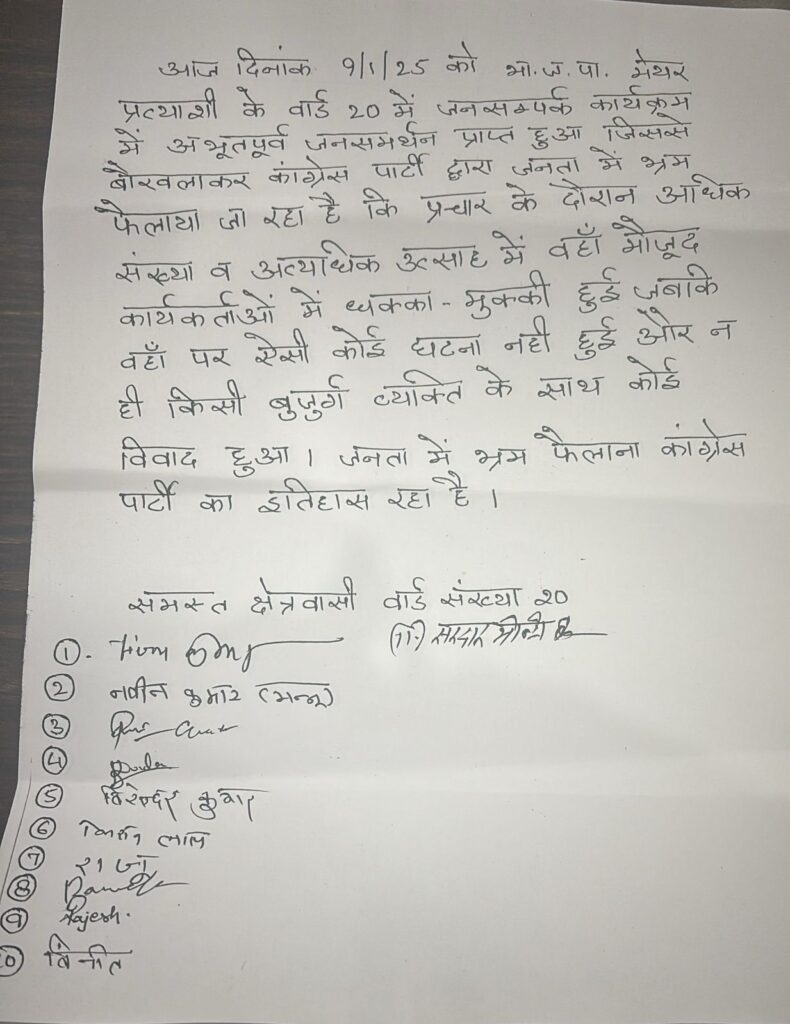 आज दिनांक 9/1/25 को भा.ज.पा. मेयर
प्रत्याशी के वार्ड 20 में जनसम्पर्क कार्यक्रम
में अभूतपूर्व जनसमर्थन प्राप्त हुआ जिससे
बौखलाकर कांग्रेस पार्टी द्वारा जनता में भ्रम
फैलाया जा रहा है कि प्रचार के दौरान अधिक
संख्या व अत्यधिक उत्साह में वहाँ मौजूद
कार्यकर्ताओं में धक्का-मुक्की हुई जबकि
वहाँ पर ऐसी कोई घटना नही हुई और न
ही किसी बुजुर्ग व्यक्ति के साथ कोई
विवाद हुआ। जनता में भ्रम फैलाना कांग्रेस
पार्टी का इतिहास रहा है।
समस्त क्षेत्रवासी वार्ड संख्या 20
1.
(11) सरदार
2 नवीन कुमार
3
4
5 विरेन्दर कुमार
6 लाल
7 राजा
8
9 Rajesh.
10 विनीत